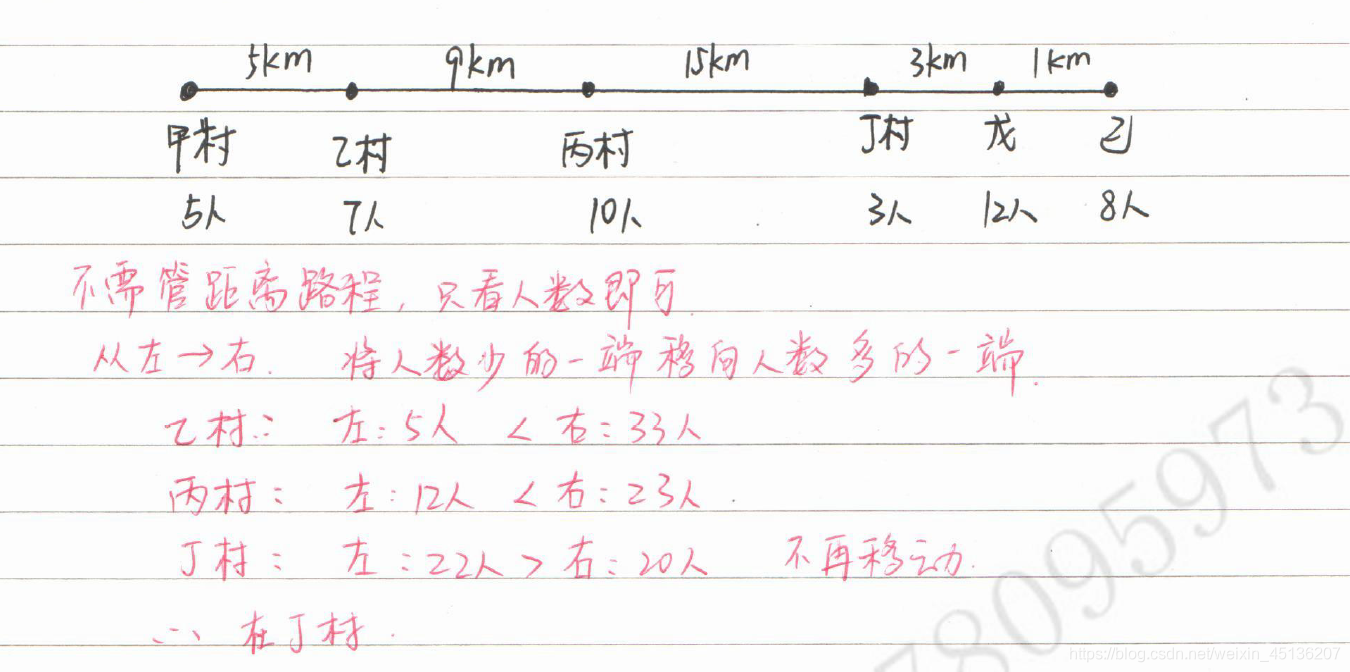 5km 9km 15km 3km 1km
甲村 乙村 丙村 丁村 戊 己
5人 7人 10人 3人 12人 8人
不需管距离路程,只看人数即可
从左→右. 将人数少的一端移向人数多的一端.
乙村: 左:5人 < 右:33人
丙村: 左:12人 < 右:23人.
丁村: 左:22人 > 右:20人 不再移动.
∴ 在丁村.
78095973
https://blog.csdn.net/weixin_45136207